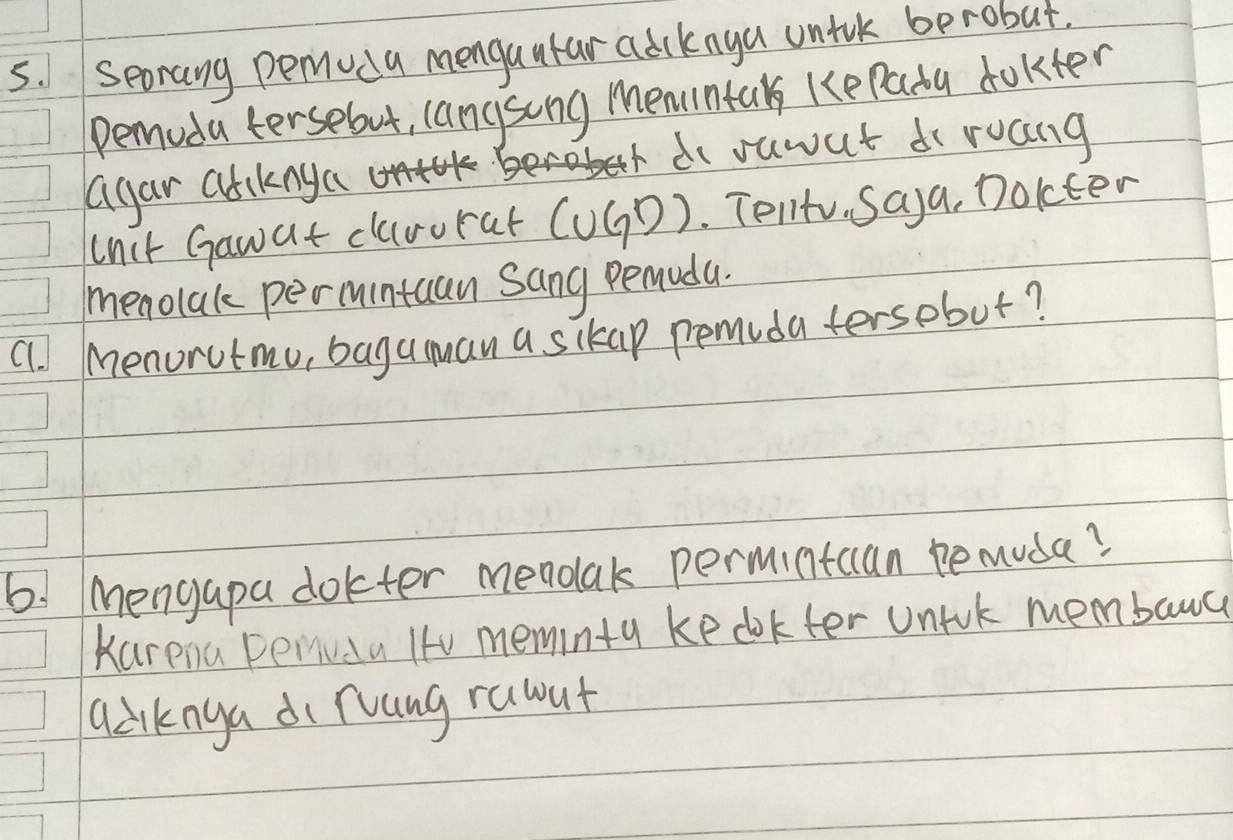 5. Seorang pemuda mengantar adiknya untuk berobat.
Pemuda tersebut, langsung memintak kepada dokter
agar adiknya untuk berobat di rawat di ruang
Unit Gawat darurat (UGD). Tentu. Saja. Dokter
menolak permintaan Sang pemuda.
a. Menurutmu, bagaiman a sikap pemuda tersebut?
b. Mengapa dokter menolak permintaan pemuda?
Karena pemuda itu meminta ke dokter untuk membawa
adiknya di ruang rawat